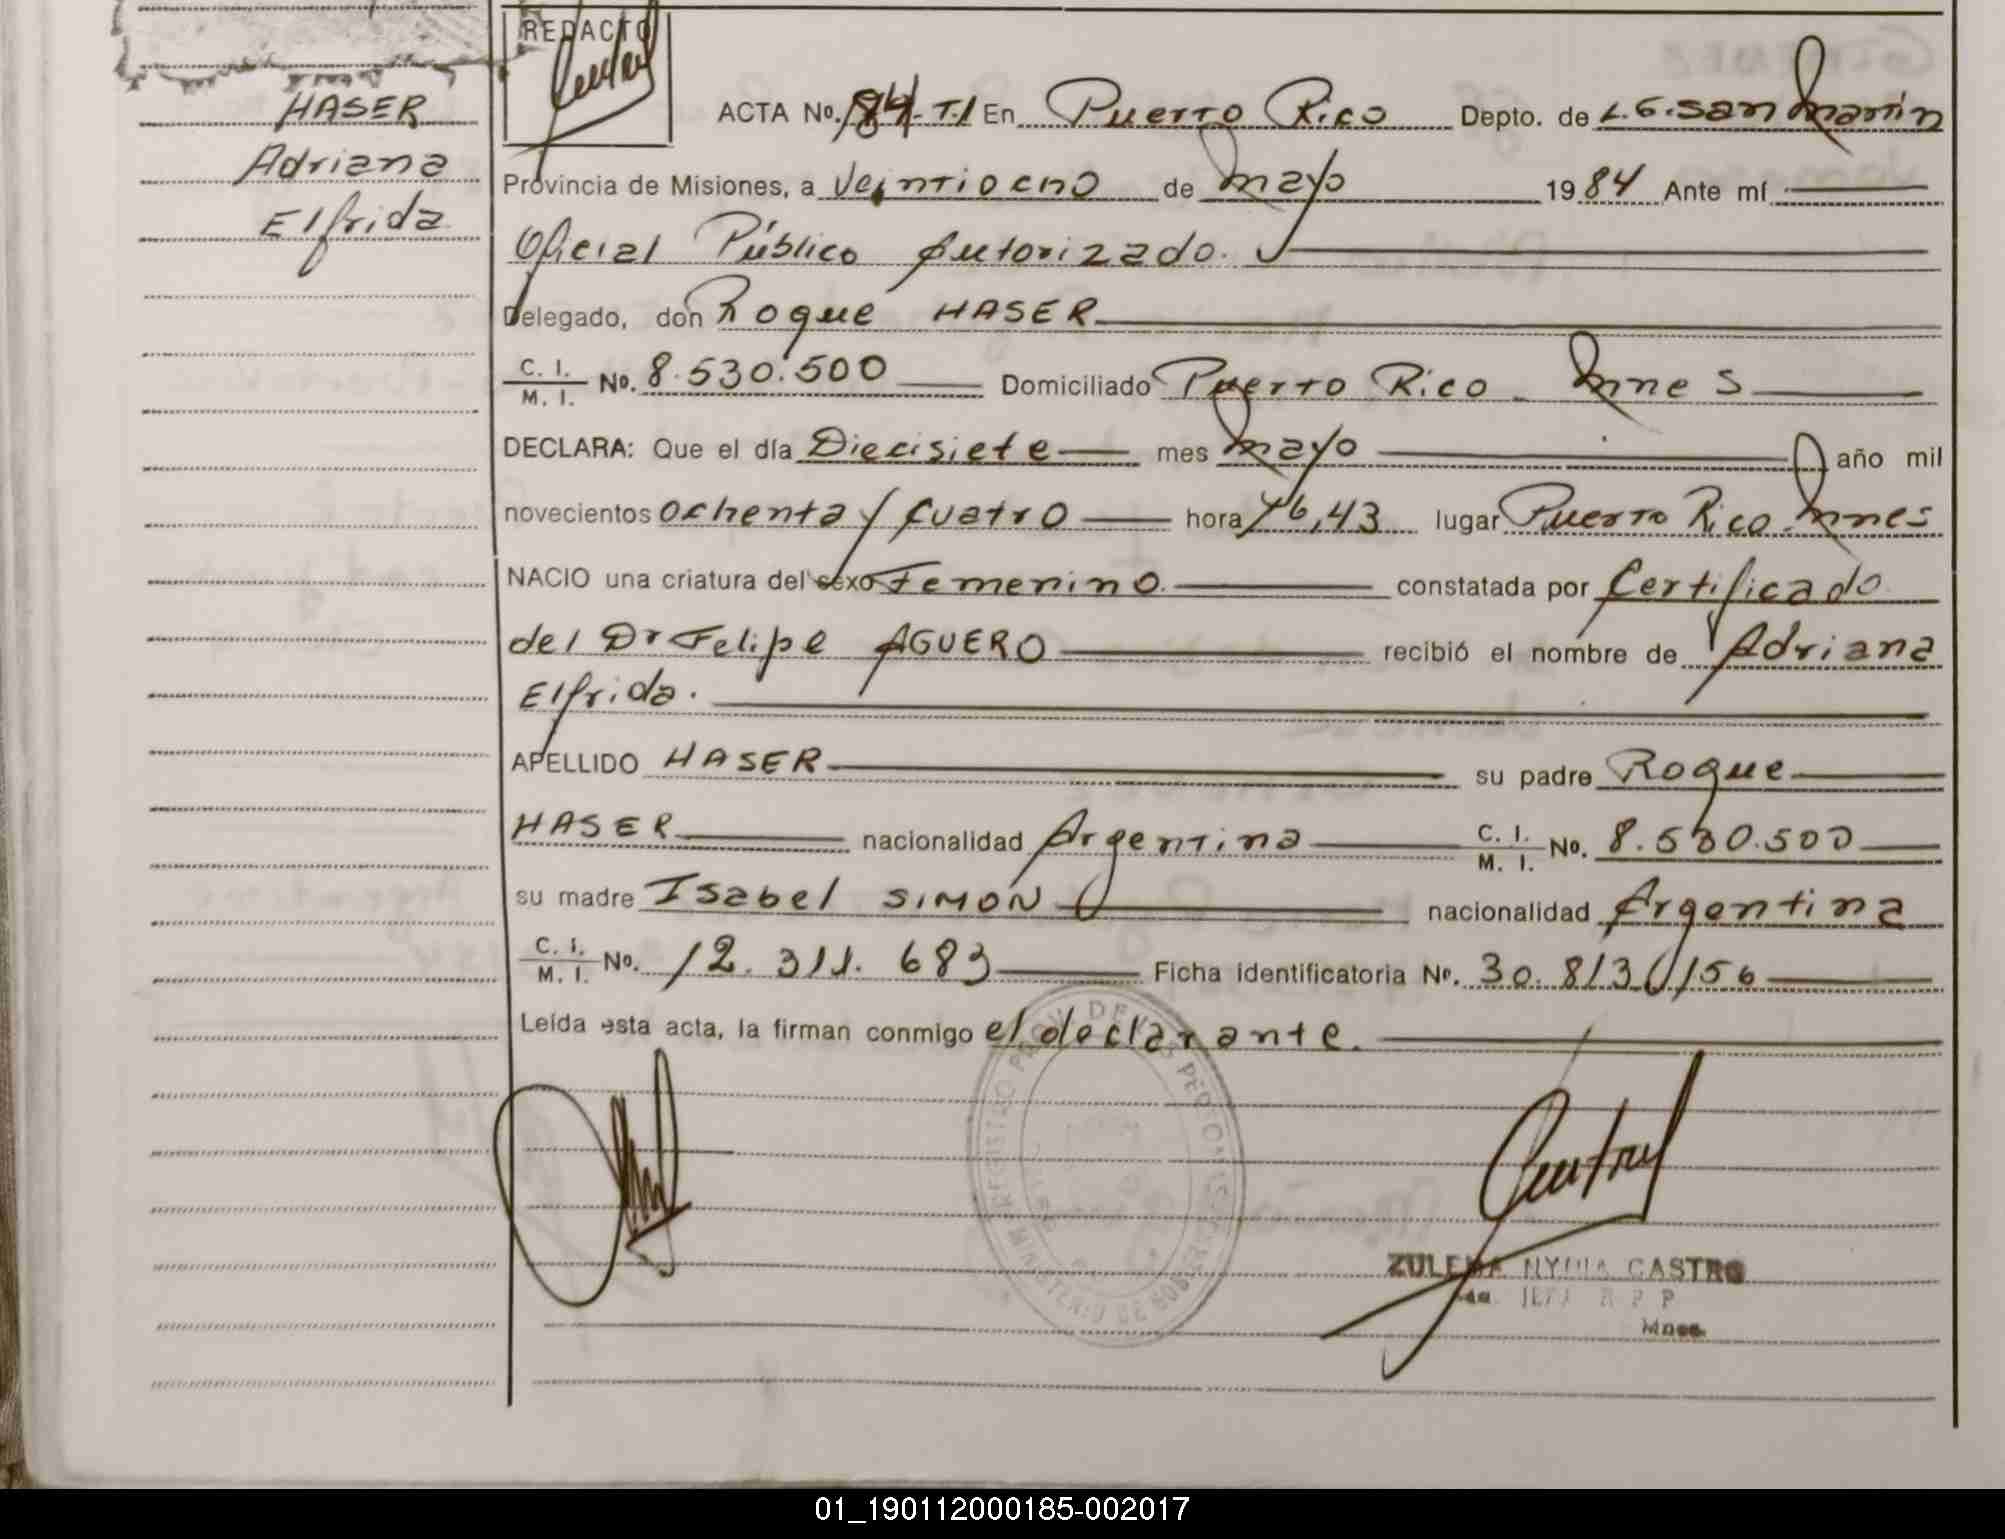 REDACTO
HASER
Adriana
Elfrida
ACTA No. 84-T.I En Puerto Rico Depto. de L.G.San Martin
Provincia de Misiones, a Veintiocho de mayo 1984 Ante mí
Oficial Público Autorizado.
Delegado, don Roque HASER
C. I. / M. I. No. 8.530.500 Domiciliado Puerto Rico - Mnes
DECLARA: Que el día Diecisiete mes mayo año mil
novecientos ochenta y cuatro hora 16,43 lugar Puerto Rico-Mnes
NACIO una criatura del sexo Femenino. constatada por Certificado
del Dr Felipe AGUERO recibió el nombre de Adriana
Elfrida.
APELLIDO HASER su padre Roque
HASER nacionalidad Argentina C. I. / M. I. No. 8.530.500
su madre Isabel SIMON nacionalidad Argentina
C. I. / M. I. No. 12.311.683 Ficha identificatoria No. 30.813.156
Leída esta acta, la firman conmigo el declarante.
ZULEMA NYDIA CASTRO
Mnes.
01_190112000185-002017